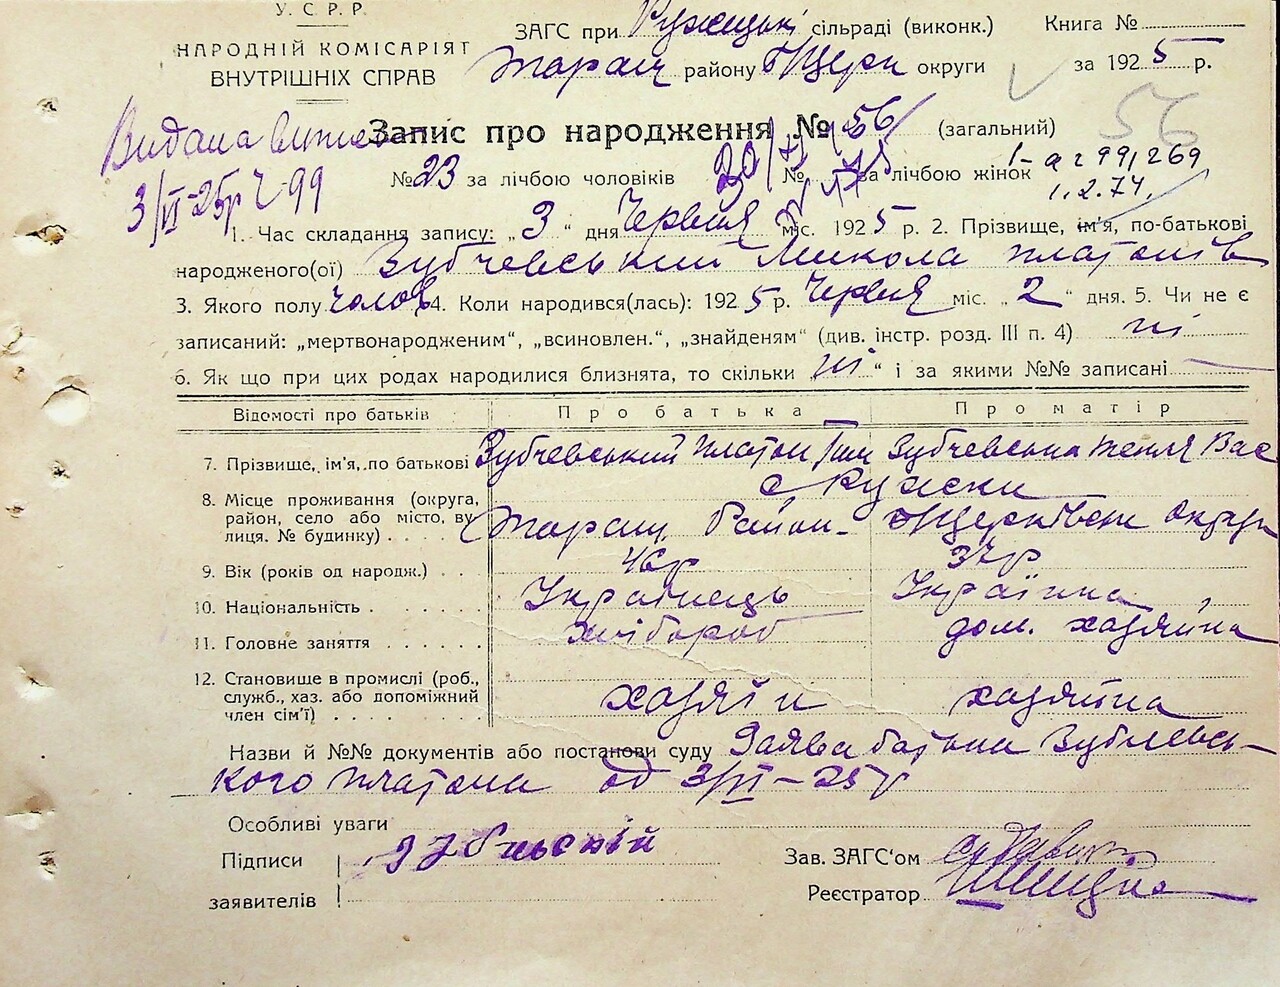 У. С. Р. Р.
НАРОДНІЙ КОМІСАРІЯТ
ВНУТРІШНІХ СПРАВ
ЗАГС при сільраді (виконк.) Книга №
Таращ району Б Церк округи за 1925 р.
Видана
3/VI-25р Ч-99
Запис про народження № 56 (загальний) 56
№ 23 за лічбою чоловіків № за лічбою жінок
1. Час складання запису: „3“ дня Червня міс. 1925 р. 2. Прізвище, ім'я, по-батькові
народженого(ої) Зубчевський Микола Платонів
3. Якого полу чолов 4. Коли народився(лась): 1925 р. Червня міс. „2“ дня. 5. Чи не є
записаний: „мертвонародженим“, „всиновлен.“, „знайденям“ (див. інстр. розд. III п. 4) ні
6. Як що при цих родах народилися близнята, то скільки „ні“ і за якими №№ записані
Відомості про батьків Про батька Про матір
7. Прізвище, ім'я, по батькові Зубчевський Платон Тим Зубчевська Вас
8. Місце проживання (округа, район, село або місто, вулиця. № будинку) с Ружки
Таращ. район. БЦерківськ округи
9. Вік (років од народж.) 46р 37р
10. Національність Українець Українка
11. Головне заняття хлібороб дом. хазяйка
12. Становище в промислі (роб., служб., хаз. або допоміжний член сім'ї) хазяїн хазяйка
Назви й №№ документів або постанови суду Заява батька Зубчевсь-
кого Платона од 3/VI-25р
Особливі уваги
Підписи
заявителів
Зав. ЗАГС'ом
Реєстратор